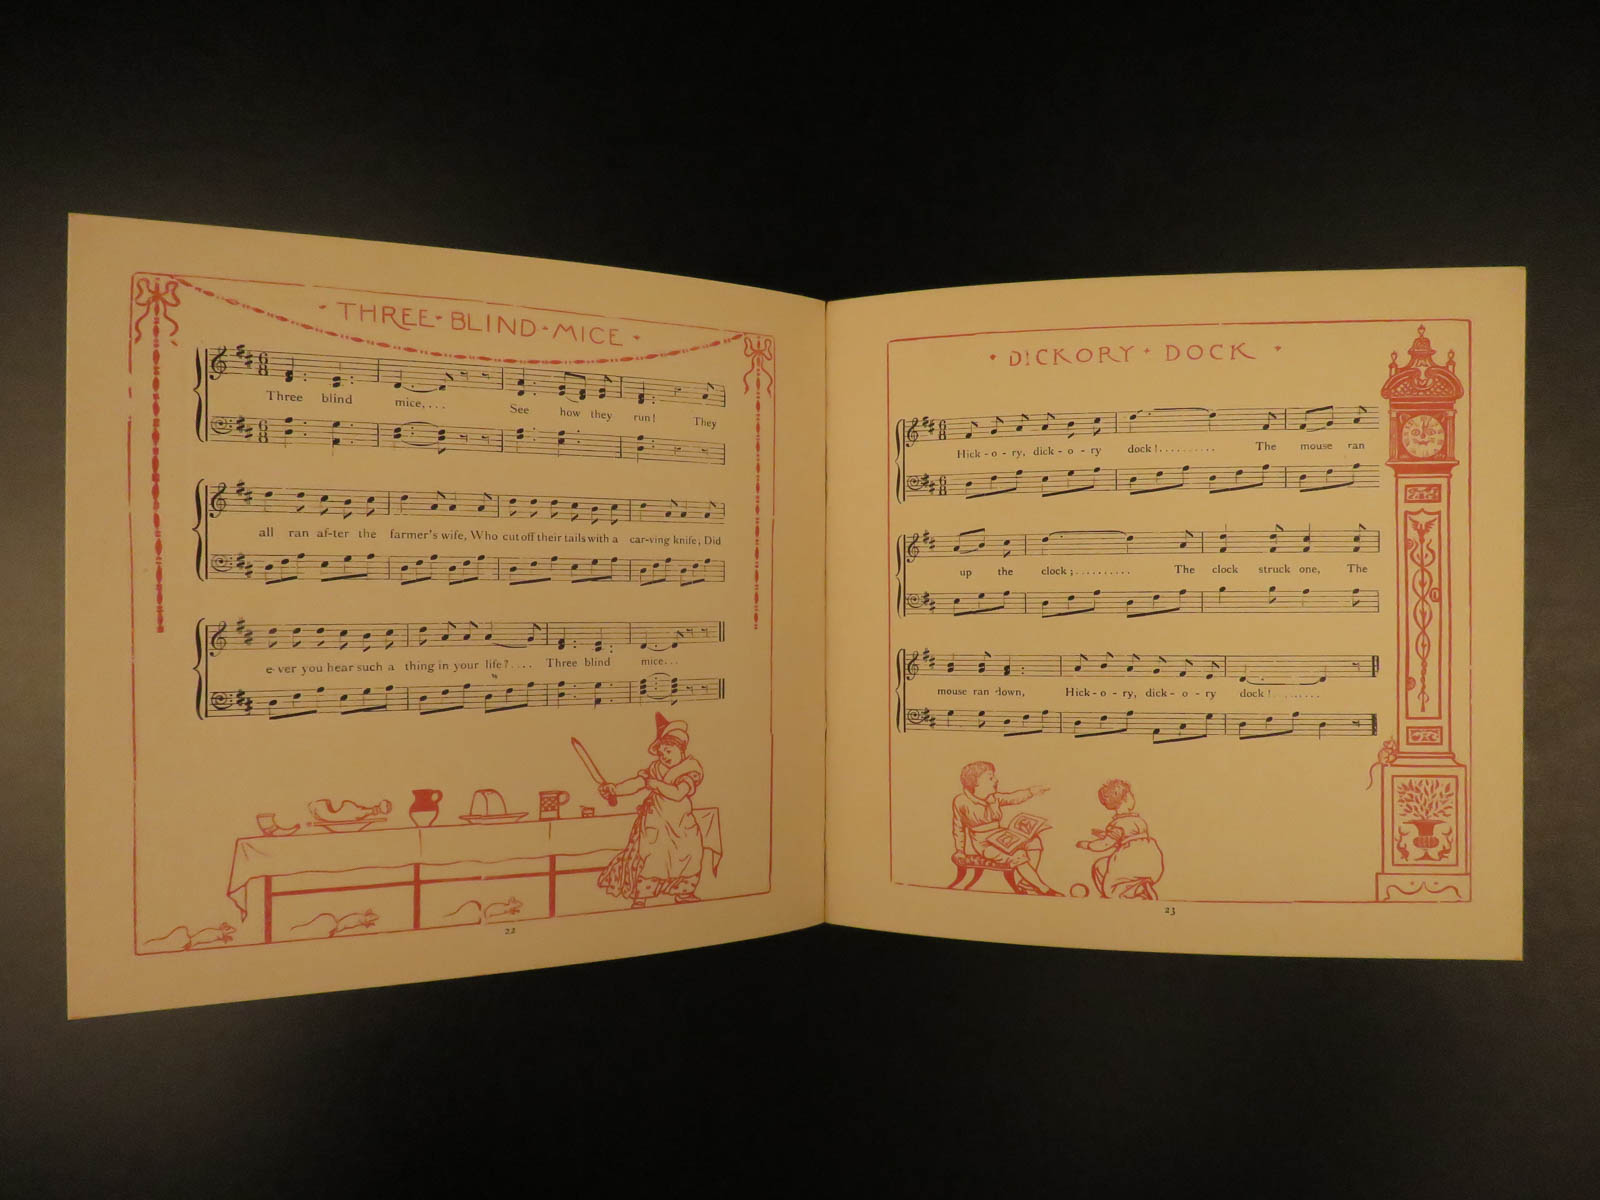 THREE - BLIND - MICE
Three blind mice,... See how they run! They
all ran af-ter the farmer's wife, Who cut off their tails with a car-ving knife; Did
e-ver you hear such a thing in your life?.... Three blind mice...
22
DICKORY DOCK
Hick - o - ry, dick - o - ry dock!......... The mouse ran
up the clock;.......... The clock struck one, The
mouse ran down, Hick - o - ry, dick - o - ry dock!.........
23